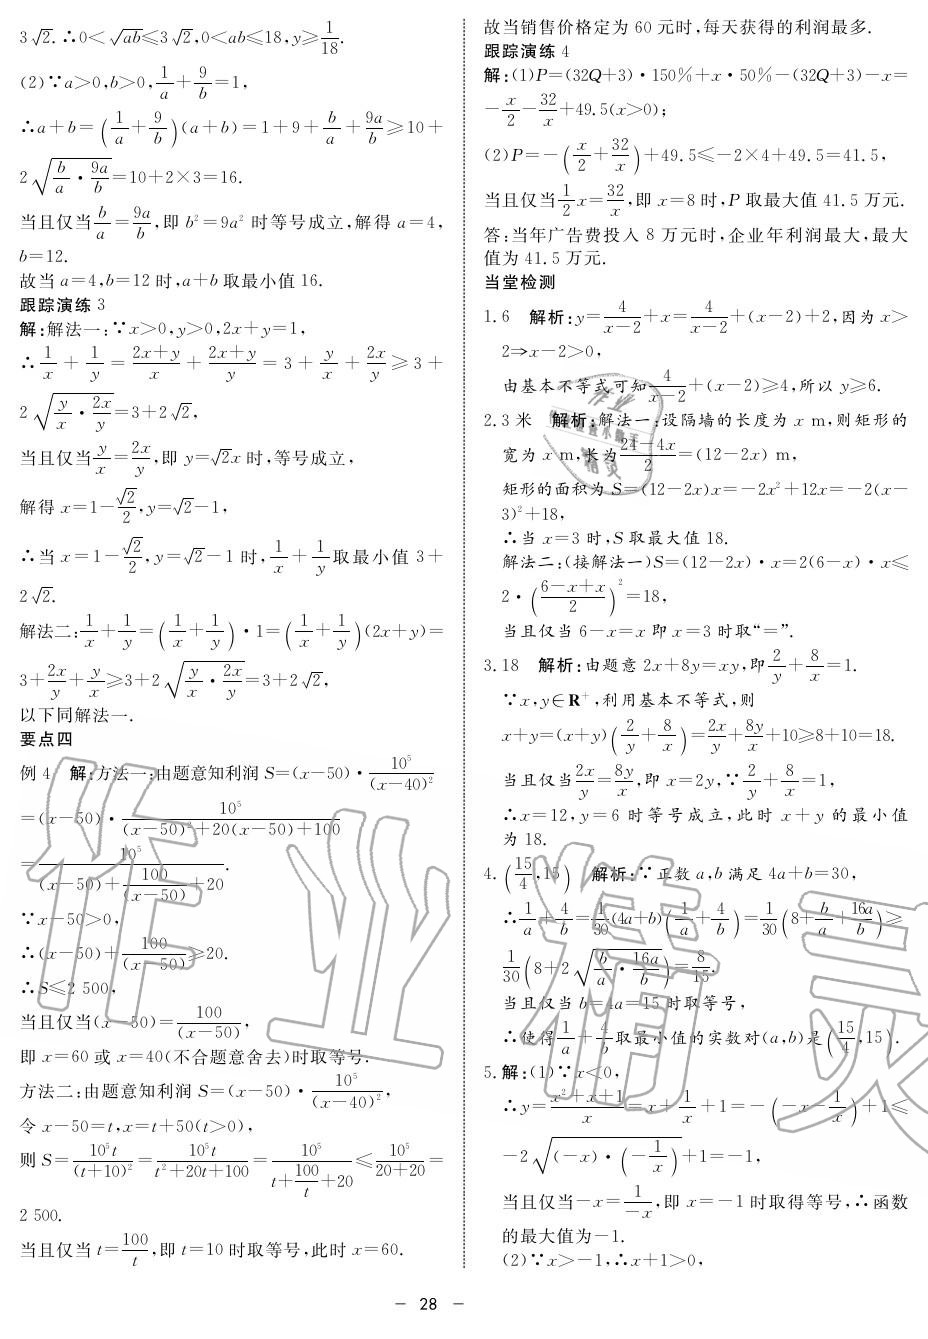 3√2.∴0<√ab≤3√2,0<ab≤18,y≥1/18.
(2)∵a>0,b>0,1/a+9/b=1,
∴a+b=(1/a+9/b)(a+b)=1+9+b/a+9a/b≥10+
2√(b/a·9a/b)=10+2×3=16.
当且仅当b/a=9a/b,即 b²=9a² 时等号成立,解得 a=4,
b=12.
故当 a=4,b=12 时,a+b 取最小值 16.
跟踪演练 3
解:解法一:∵x>0,y>0,2x+y=1,
∴1/x+1/y=(2x+y)/x+(2x+y)/y=3+y/x+2x/y≥3+
2√(y/x·2x/y)=3+2√2,
当且仅当y/x=2x/y,即 y=√2x 时,等号成立,
解得 x=1-√2/2,y=√2-1,
∴当 x=1-√2/2,y=√2-1 时,1/x+1/y取最小值 3+
2√2.
解法二:1/x+1/y=(1/x+1/y)·1=(1/x+1/y)(2x+y)=
3+2x/y+y/x≥3+2√(y/x·2x/y)=3+2√2,
以下同解法一.
要点四
例 4 解:方法一:由题意知利润 S=(x-50)·10⁵/(x-40)²
=(x-50)·10⁵/((x-50)²+20(x-50)+100)
=10⁵/((x-50)+100/(x-50)+20).
∵x-50>0,
∴(x-50)+100/(x-50)≥20.
∴S≤2 500,
当且仅当(x-50)=100/(x-50),
即 x=60 或 x=40(不合题意舍去)时取等号.
方法二:由题意知利润 S=(x-50)·10⁵/(x-40)²,
令 x-50=t,x=t+50(t>0),
则 S=10⁵t/(t+10)²=10⁵t/(t²+20t+100)=10⁵/(t+100/t+20)≤10⁵/(20+20)=
2 500.
当且仅当 t=100/t,即 t=10 时取等号,此时 x=60.
故当销售价格定为 60 元时,每天获得的利润最多.
跟踪演练 4
解:(1)P=(32Q+3)·150%+x·50%-(32Q+3)-x=
-x/2-32/x+49.5(x>0);
(2)P=-(x/2+32/x)+49.5≤-2×4+49.5=41.5,
当且仅当1/2x=32/x,即 x=8 时,P 取最大值 41.5 万元.
答:当年广告费投入 8 万元时,企业年利润最大,最大
值为 41.5 万元.
当堂检测
1.6 解析:y=4/(x-2)+x=4/(x-2)+(x-2)+2,因为 x>
2⇒x-2>0,
由基本不等式可知4/(x-2)+(x-2)≥4,所以 y≥6.
2.3 米 解析:解法一:设隔墙的长度为 x m,则矩形的
宽为 x m,长为(24-4x)/2=(12-2x) m,
矩形的面积为 S=(12-2x)x=-2x²+12x=-2(x-
3)²+18,
∴当 x=3 时,S 取最大值 18.
解法二:(接解法一)S=(12-2x)·x=2(6-x)·x≤
2·((6-x+x)/2)²=18,
当且仅当 6-x=x 即 x=3 时取“=”.
3.18 解析:由题意 2x+8y=xy,即2/y+8/x=1.
∵x,y∈R⁺,利用基本不等式,则
x+y=(x+y)(2/y+8/x)=2x/y+8y/x+10≥8+10=18.
当且仅当2x/y=8y/x,即 x=2y,∵2/y+8/x=1,
∴x=12,y=6 时等号成立,此时 x+y 的最小值
为 18.
4.(15/4,15) 解析:∵正数 a,b 满足 4a+b=30,
∴1/a+4/b=1/30(4a+b)(1/a+4/b)=1/30(8+b/a+16a/b)≥
1/30(8+2√(b/a·16a/b))=8/15,
当且仅当 b=4a=15 时取等号,
∴使得1/a+4/b取最小值的实数对(a,b)是(15/4,15).
5.解:(1)∵x<0,
∴y=(x²+x+1)/x=x+1/x+1=-(-x-1/x)+1≤
-2√((-x)·(-1/x))+1=-1,
当且仅当-x=1/(-x),即 x=-1 时取得等号,∴函数
的最大值为-1.
(2)∵x>-1,∴x+1>0,
- 28 -
作业精灵